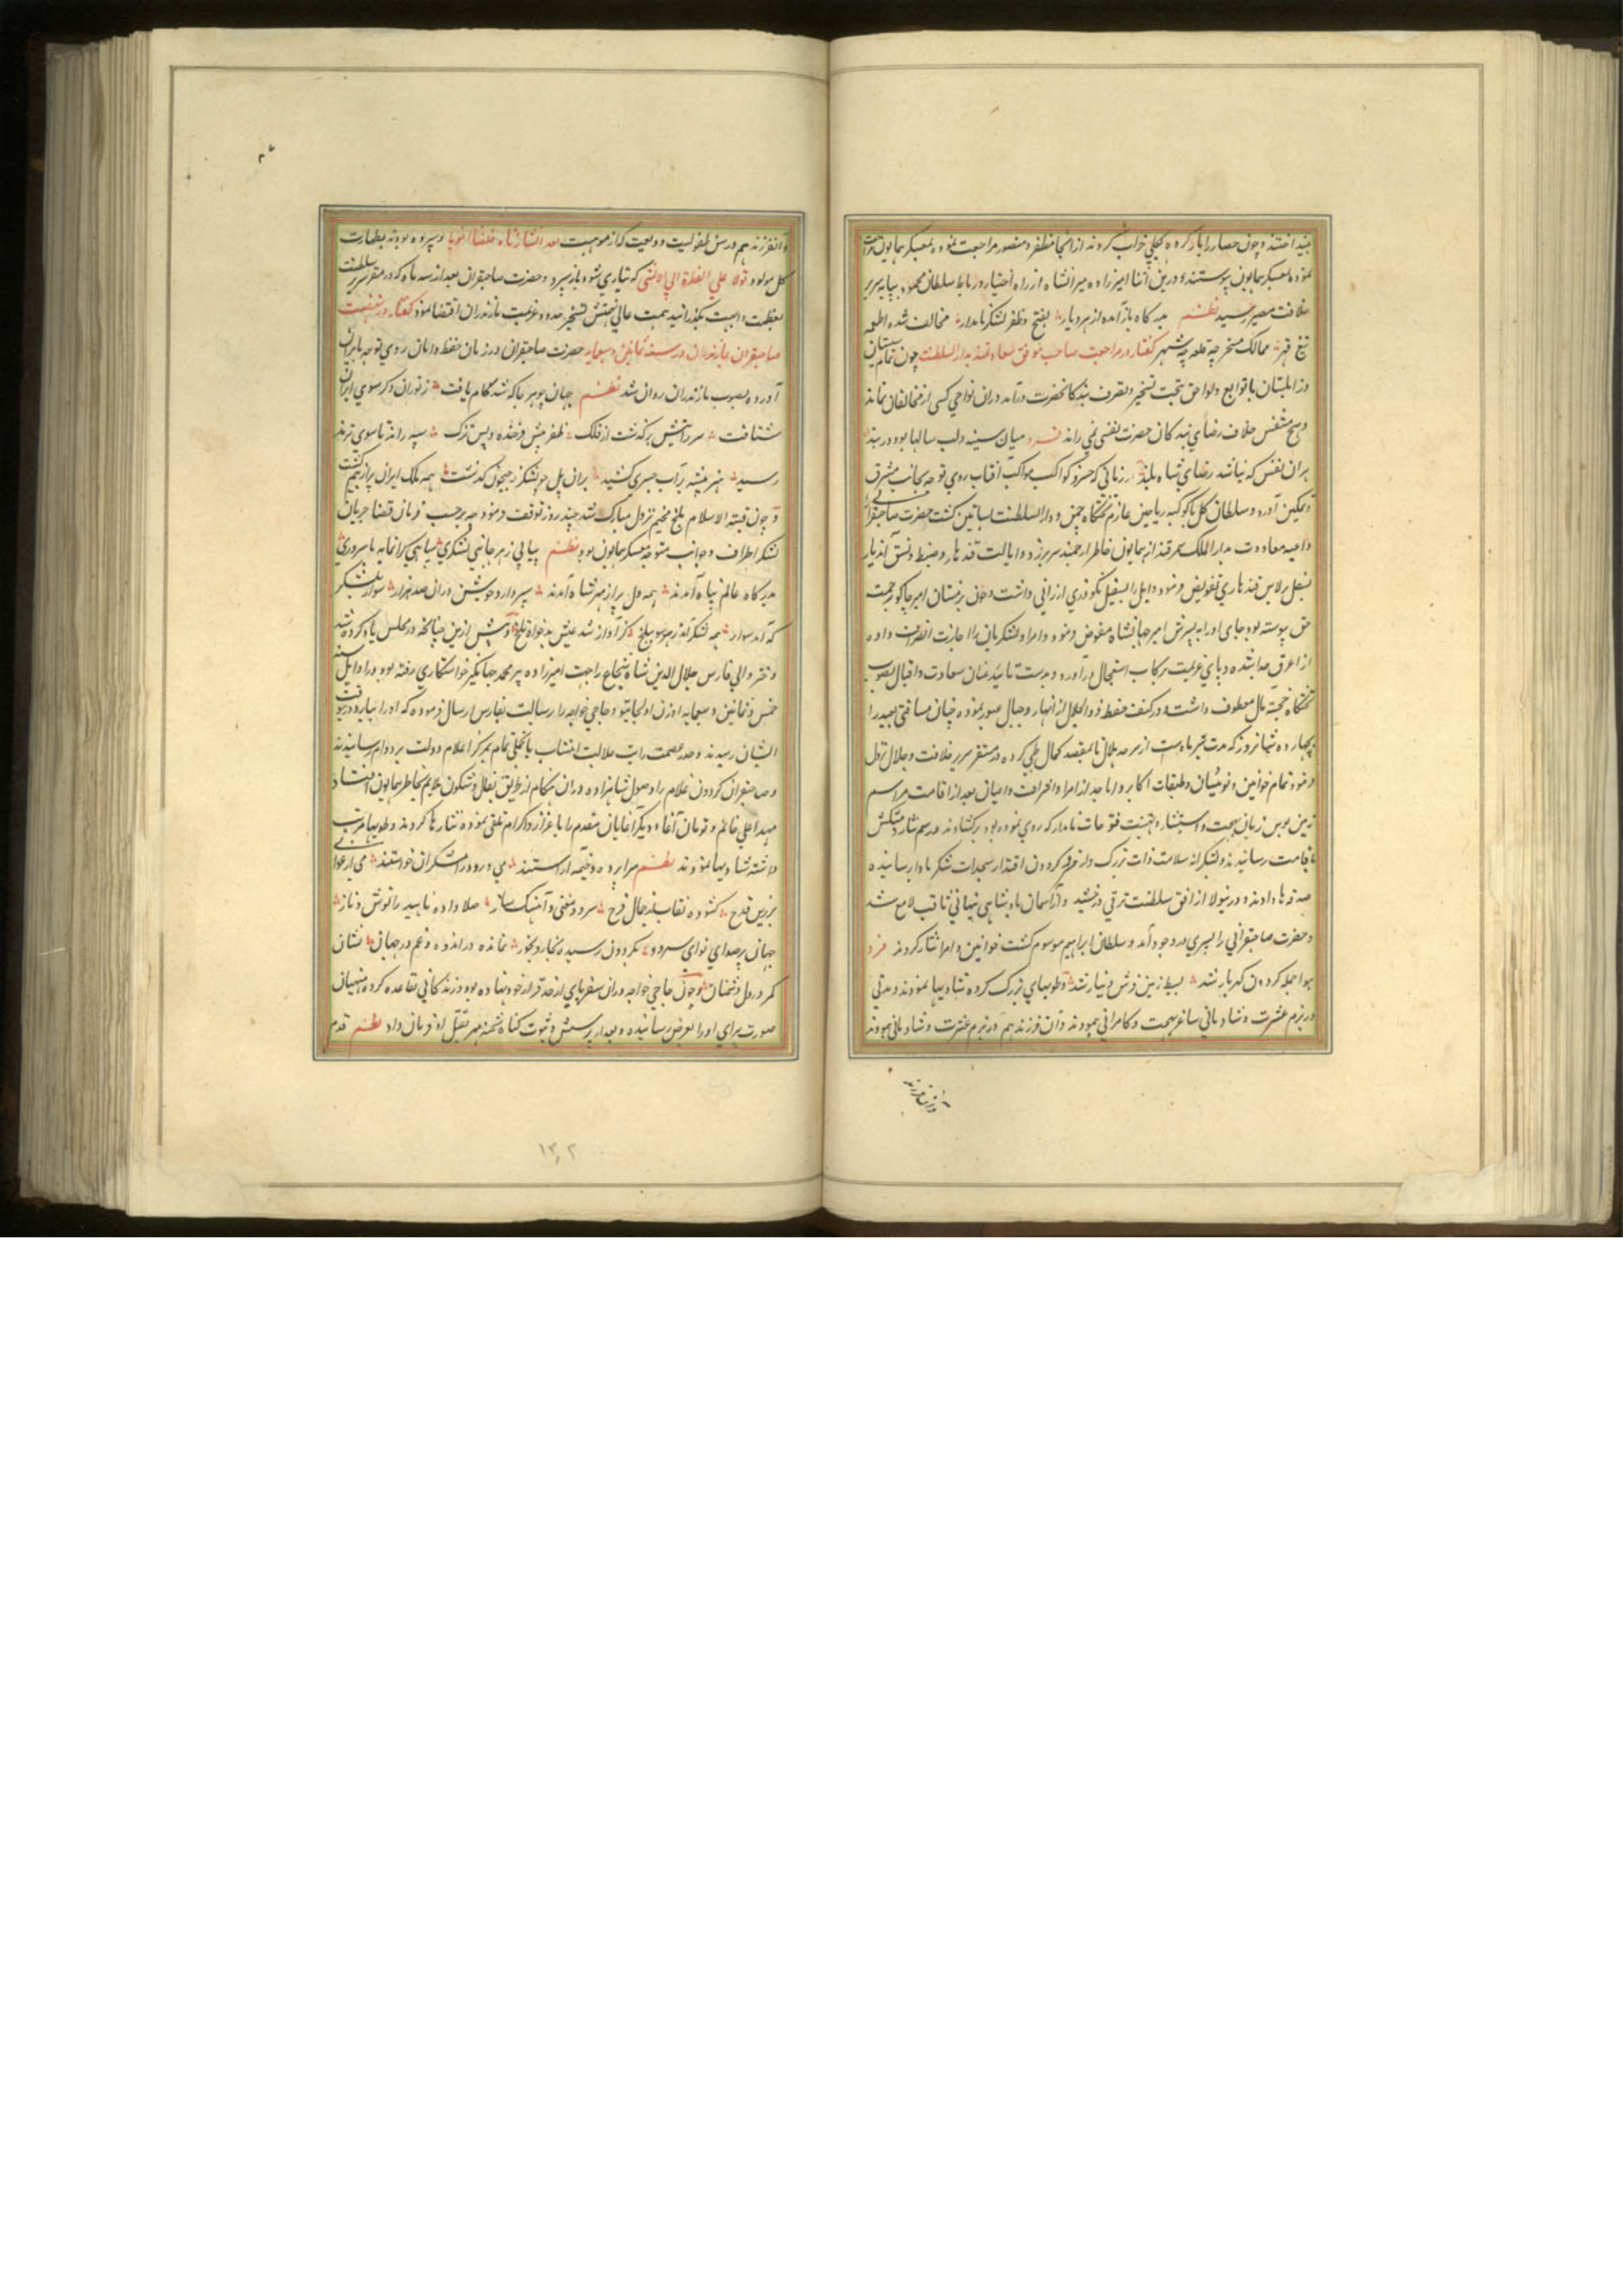 بینداختند و چون حصار را باز کرده بکلی خراب کردند از آنجا مظفر و منصور مراجعت نموده بمعسکر همایون
نموده بمعسکر همایون پیوستند و درین اثنا امیرزاده میرانشاه از راه اختیار در رباط سلطان محمود بپایه سریر
خلافت مصیر رسید نظم بدرگاه باز آمده از هر دیار بفتح و ظفر لشکر نامدار مخالف شده طعمه
تیغ قهر ممالک مسخر چه قلعه چه شهر گفتار در مراجعت صاحب بدار السلطنت چون تمام سیستان
و زابلستان با توابع و لواحق بتحت تسخیر و تصرف بندکان حضرت درآمد و در آن نواحی کسی از مخالفان نماند
و هیچ متنفس خلاف رضای بندکان حضرت نفسی نمی راند فرد میان سینه و لب سالها بود در بند
بر آن نفس که نباشد رضای شاه بلند در زمانی که خسرو کواکب مواکب آفتاب روی توجه بجانب مشرق
و تمکین آورد و سلطان گل با کوکبه ریاحین عازم تختگاه چمن و دار السلطنت بساتین گشت حضرت صاحبقرانی
داعیه معاودت بدار الملک سمرقند از همایون خاطر ارجمند سر برزد و ایالت قندهار و ضبط و نسق آن دیار
بسیفل برلاس قندهاری تفویض فرمود و ایل را بسیفل نکودری ارزانی داشت و چون در زمستان امیر چاکو برحمت
حق پیوسته بود جای او را به پسرش امیر جهانشاه مفوض فرمود و امرا و لشکریان را اجازت انصراف داده
از اغرق جدا شده و پای عزیمت برکاب استعجال درآورد و بدست تائید عنان سعادت و اقبال بصوب
تختگاه خجسته مآل معطوف داشت و در کنف حفظ ذو الجلال از انهار و جبال عبور نموده چنان مسافتی بعید را
بچهارده شبانروز که مدت سیر ماه است از سرحد هلال تا بمقصد کمال طی کرده در مستقر سریر خلافت و جلال نزول
فرمود تمام خواتین و نوئینان و طبقات اکابر و اماجد از امرا و اشراف و اعیان بعد از اقامت مراسم
زمین بوس زبان بهجت و استبشار بتهنیت فتوحات نامدار که روی نموده بود برکشادند و رسم نثار و پیشکش
باقامت رسانیدند و بشکرانه سلامت ذات بزرگ وار حضرت گردون اقتدار سجدات شکر بادا رسانیده
صدقه ها دادند و در نیولا از افق سلطنت ترقی درخشید و از آسمان پادشاهی شهابی ثاقب لامع شد
و حضرت صاحبقرانی را پسری در وجود آمد و بسلطان ابراهیم موسوم گشت خواتین و امرا نثار کردند فرد
هوا جمله گردون گهربار شد بسیط زمین فرش دینار شد و طویهای بزرگ کرده شادیها نمودند و مدتی
در بزم عشرت و شادمانی ساغر بهجت و کامرانی پیمودند و آن فرزند هم در بزم عشرت و شادمانی بودند
و آنفرزند هم در سن طفولیت ودیعت که از موهبت سپرده بودند بطهارت
کل مولود تولد علی الفطرة که تباری بشود باز سپرد و حضرت صاحبقران بعد از سه ماه که در مقر سریر سلطنت
بعظمت و ابهت بگذرانید همت عالی نهمتش تسخیر حدود و عزیمت مازندران اقتضا نمود گفتار در نهضت
صاحبقران بمازندران در سنه ثمانین و سبعمایه حضرت صاحبقران در زمان حفظ و امان روی توجه بایران
آورده بصوب مازندران روان شد نظم جهان پوی هر جا که شد کام یافت ز توران دگر سوی ایران
شتافت سر رایتش برگذشت از فلک ظفر پیش و خنده و پس ترک سپه راند تا سوی ترمد
رسید هنر پیشه بر آب جسری کشید بر آن پل چو لشکر ز جیحون گذشت همه ملک ایران پر از بیم گشت
و چون قبة الاسلام بلخ مخیم نزول مبارک شد چند روز توقف فرمود چه بر حسب فرمان قضا جریان
لشکر اطراف و جوانب متوجه معسکر همایون بود نظم پیاپی ز هر جانبی لشکری سپاهی گرانمایه با سروری
بدرگاه عالم پناه آمدند همه دل پر از مهر شاه آمدند سپردار و جوشن وران صد هزار سوار
که آمد سوار همه لشکر آمد ز هر سو ببلخ کز آواز شد عیش بدخواه تلخ و پیش ازین چنانچه در مجلس یاد کرده شد
دختر والی فارس جلال الدین شاه شجاع را جهت امیرزاده پیر محمد جهانگیر خواستگاری رفته بود و در اوایل سنه
خمس و ثمانین و سبعمایه اوزن اولجایتو و حاجی خواجه را رسالت بفارس ارسال فرموده که او را بیارد درینوقت
ایشان رسیدند و مهد عصمت رات جلالت انتساب با تجملی تمام بمرکز اعلام دولت بر دوام رسانیدند
و صاحبقران گردون غلام را وصول شاهزاده در آن هنگام از طریق تفال و شگون ملایم خاطر همایون افتاد
مهد اعلی خانم و تومان آغا و دیگر آغایان مقدم را باعزاز و اکرام تلقی نموده نثارها کردند و طویها مرتب
داشته شادیها نمودند نظم سراپرده و خیمه آراستند می و رود و رامشگران خواستند می ارغوانی
بزرین قدح گشوده نقاب از جمال فرح سرود مغنی و آهنگ ساز صلا داده ناهید را نوش و ناز
جهان پر صدای نوای سرود بگردون رسیده بخار و بخور نمانده در اندوه و غم در جهان نشان
مگر در دل دشمنان و چون حاجی خواجه در آن سفر پای از حد قرار خود نهاده بود و زندگانی بقاعده کرده منهیان
صورت برای او را بعرض رسانیده و بعد از پرسش و ثبوت گناه شحنه قهر بقتل او فرمان داد نظم قدم
۱۳۰۲